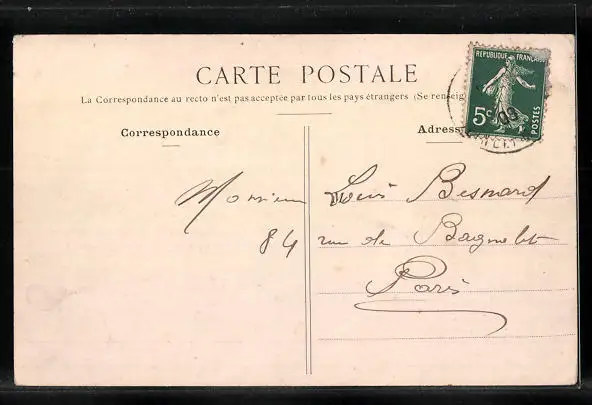 CARTE POSTALE
La Correspondance au recto n'est pas acceptée par tous les pays étrangers (Se renseig
Correspondance
Adress
REPUBLIQUE FRANÇAISE
5c
POSTES
09
Monsieur Louis Besnard
84 rue de Bagnolet
Paris